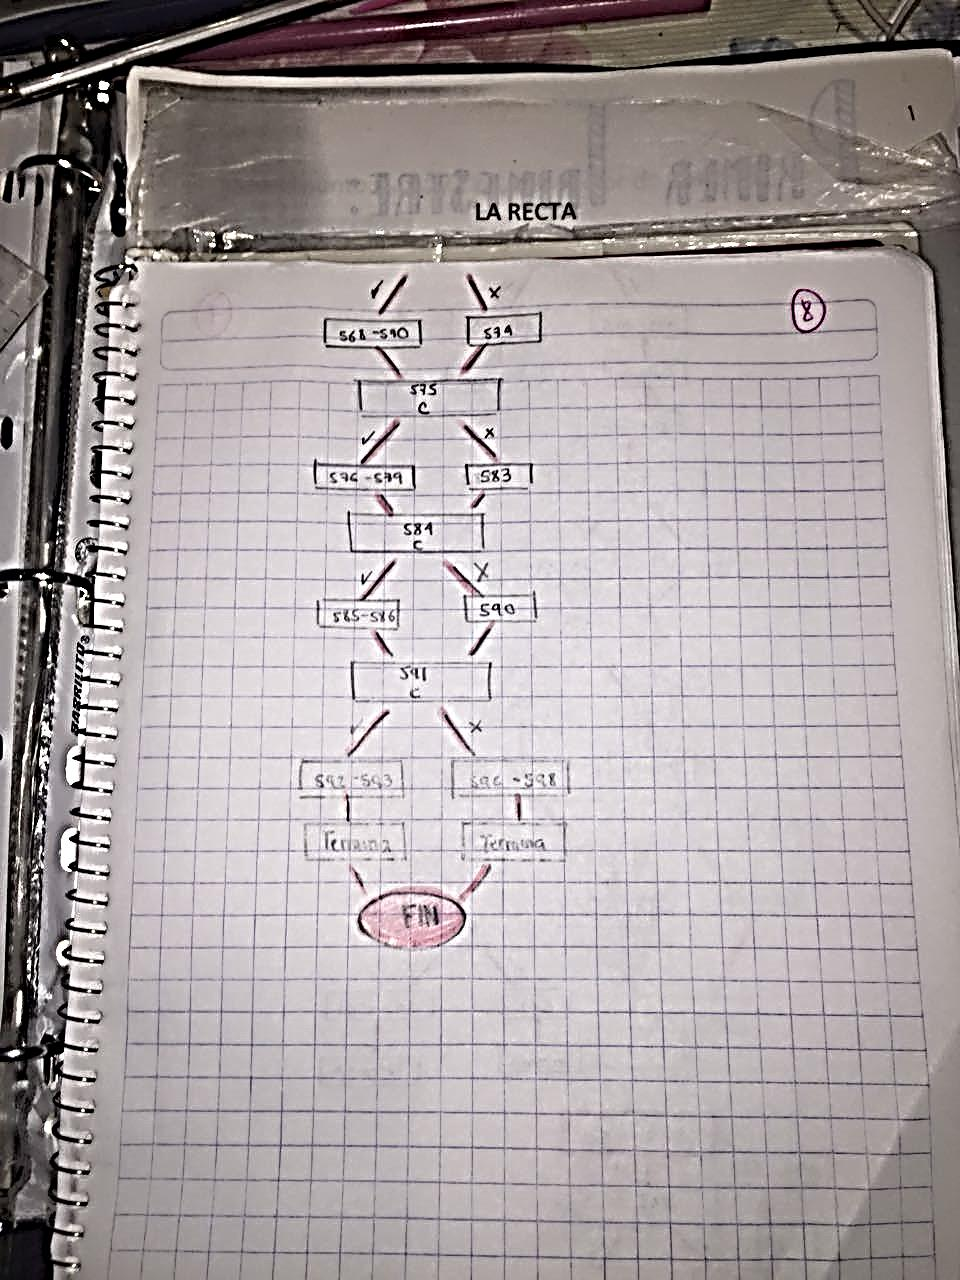 1
PRIMER TRIMESTRE:
LA RECTA
8
✓ x
568-570 574
575
C
✓ x
576-579 583
584
C
✓ x
585-586 590
591
C
x
592-593 596-598
Termina Termina
FIN
BARRILITO®